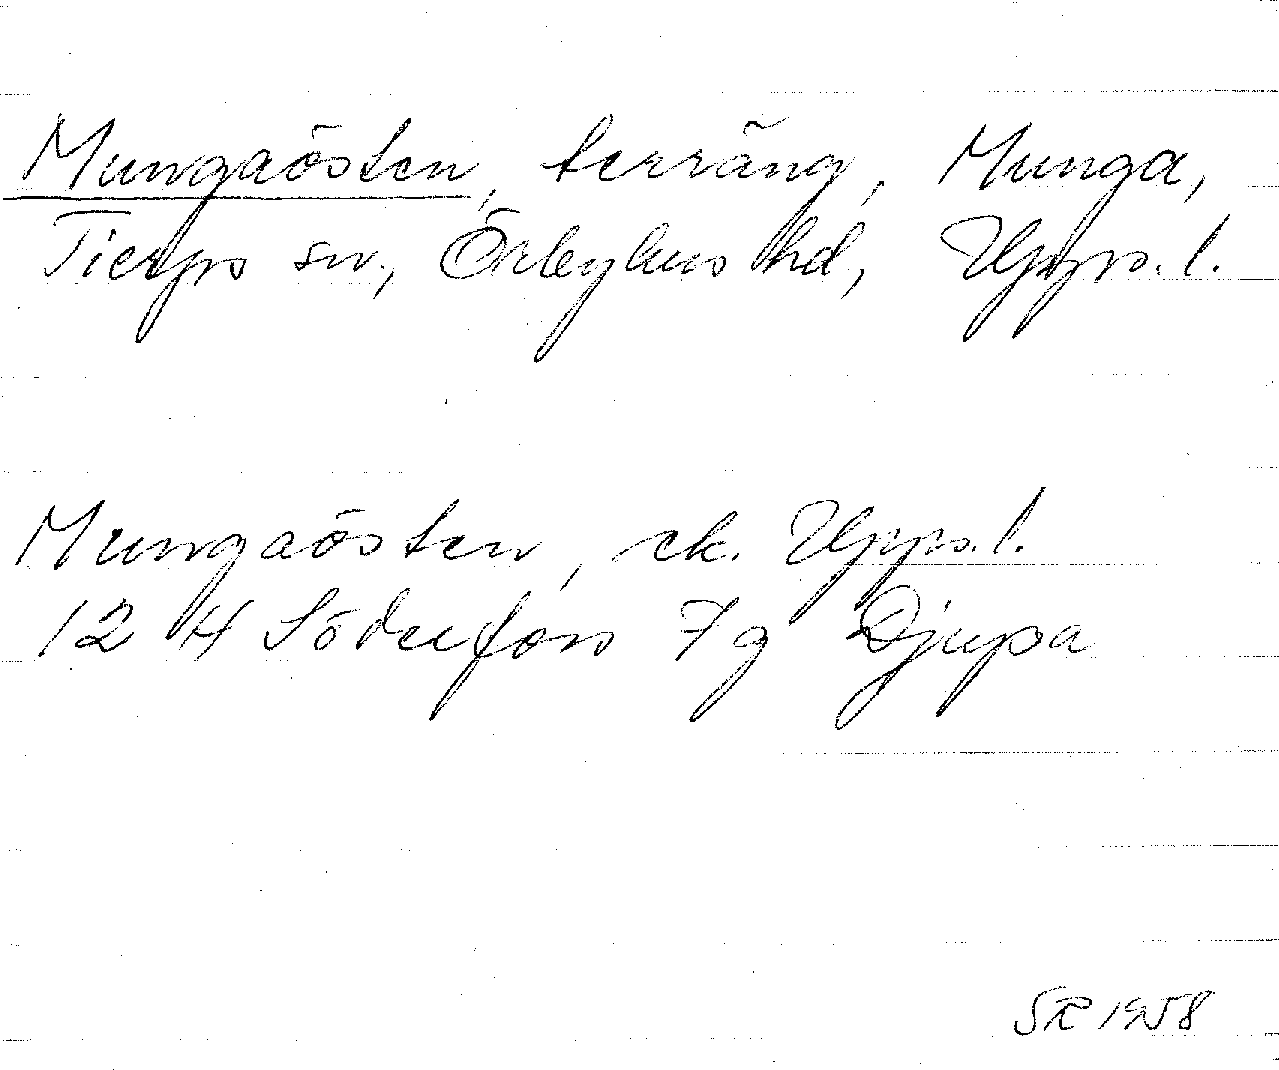 Mungaösten, terräng, Munga,
Tierps sn., Örbyhus hd, Upps. l.
Mungaösten, ek. Upps. l.
12 H Söderfors 7 g Djupa
SR 1958